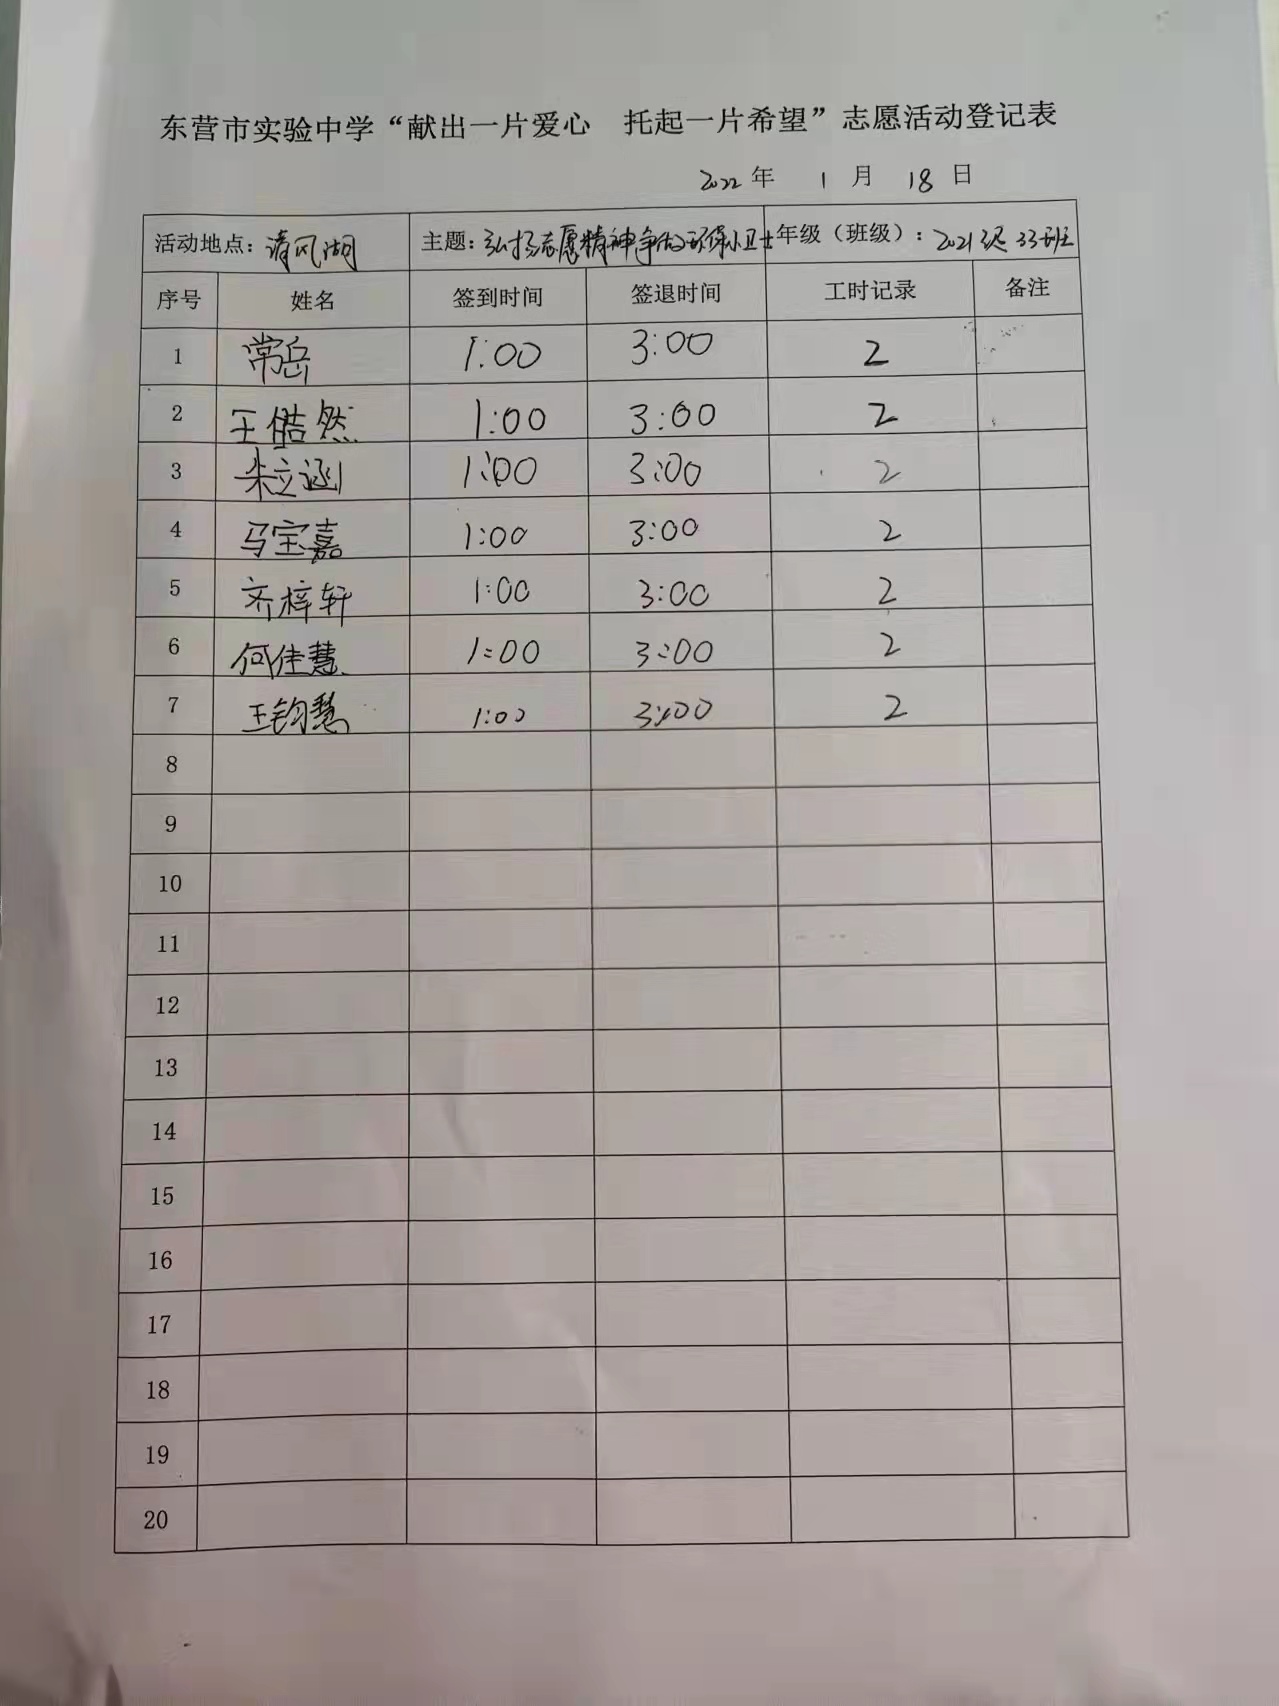 东营市实验中学“献出一片爱心 托起一片希望”志愿活动登记表
2022年 1月 18日
活动地点：清风湖 主题：弘扬志愿精神争做环保小卫士 年级（班级）：2021级33班
序号 姓名 签到时间 签退时间 工时记录 备注
1 常岳 1:00 3:00 2
2 王皓然 1:00 3:00 2
3 朱立涵 1:00 3:00 2
4 马宝嘉 1:00 3:00 2
5 齐梓轩 1:00 3:00 2
6 何佳慧 1:00 3:00 2
7 王钧慧 1:00 3:00 2
8
9
10
11
12
13
14
15
16
17
18
19
20